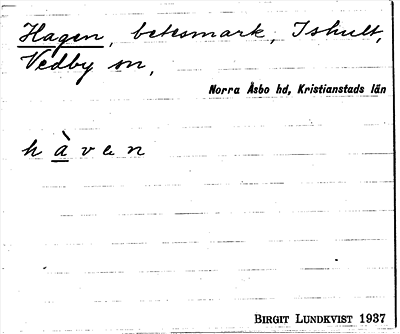 Hagen, betesmark, Ishult,
Vedby sn,
Norra Åsbo hd, Kristianstads län
h à v e n
BIRGIT LUNDKVIST 1937